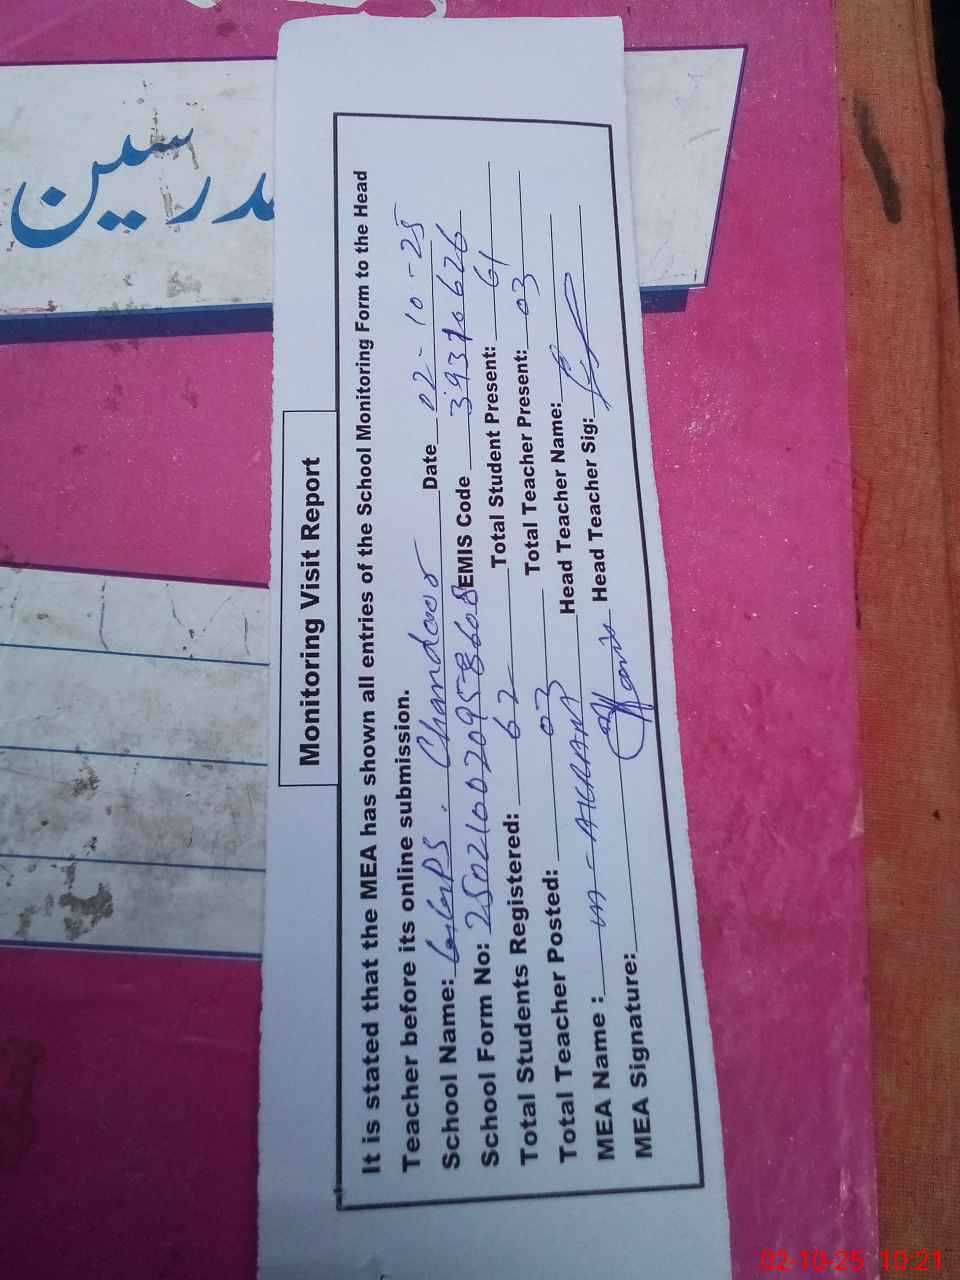 مدرسین
Monitoring Visit Report
It is stated that the MEA has shown all entries of the School Monitoring Form to the Head
Teacher before its online submission.
School Name: GGPS. Chandoor Date 02-10-25
School Form No: EMIS Code 39310626
Total Students Registered: 62 Total Student Present: 61
Total Teacher Posted: 03 Total Teacher Present: 03
MEA Name : M-AKRAM Head Teacher Name:
MEA Signature: Head Teacher Sig:
02-10-25 10:21